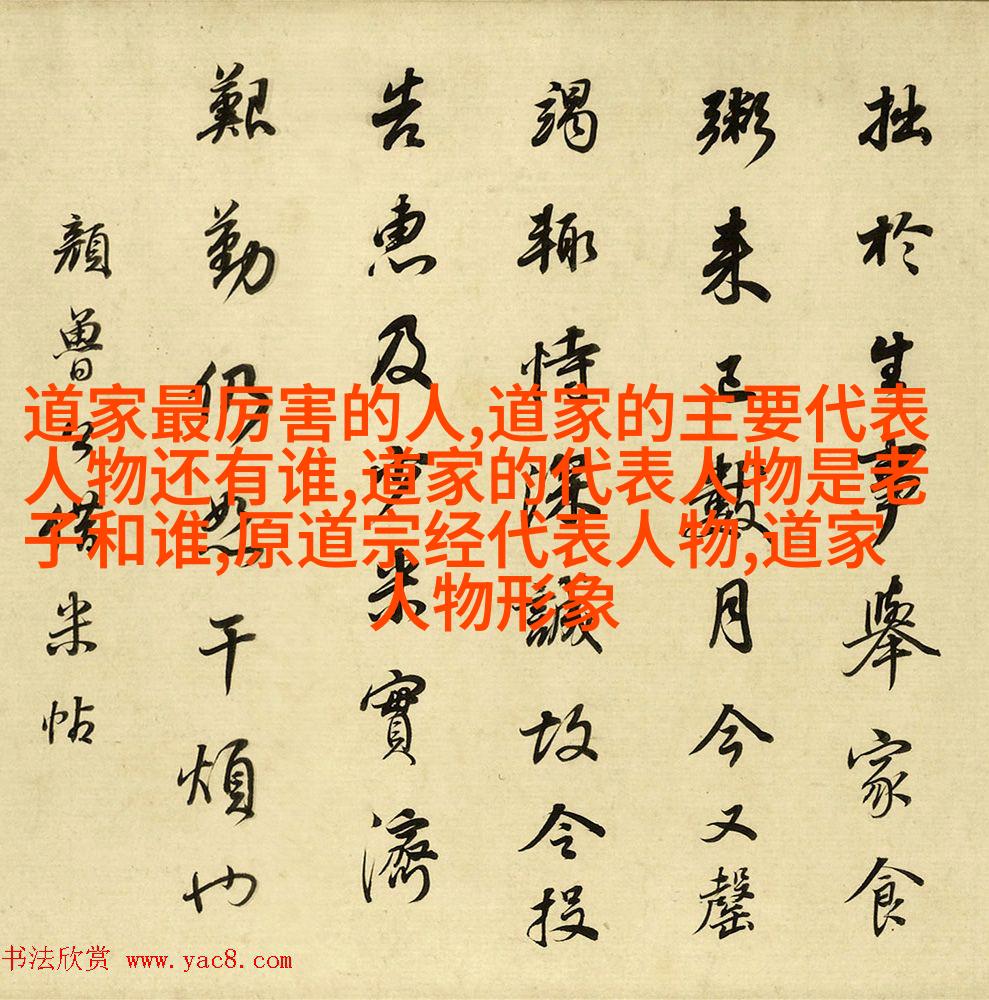 拙於生事舉家食
粥来已數月今又罄
竭輙恃深誠故令投
告惠及米實濟
艱勤仍恕干煩也
顏魯公借米帖
道家最厉害的人,道家的主要代表
人物还有谁,道家的代表人物是老
子和谁,原道宗经代表人物,道家
人物形象
书法欣赏 www.yac8.com